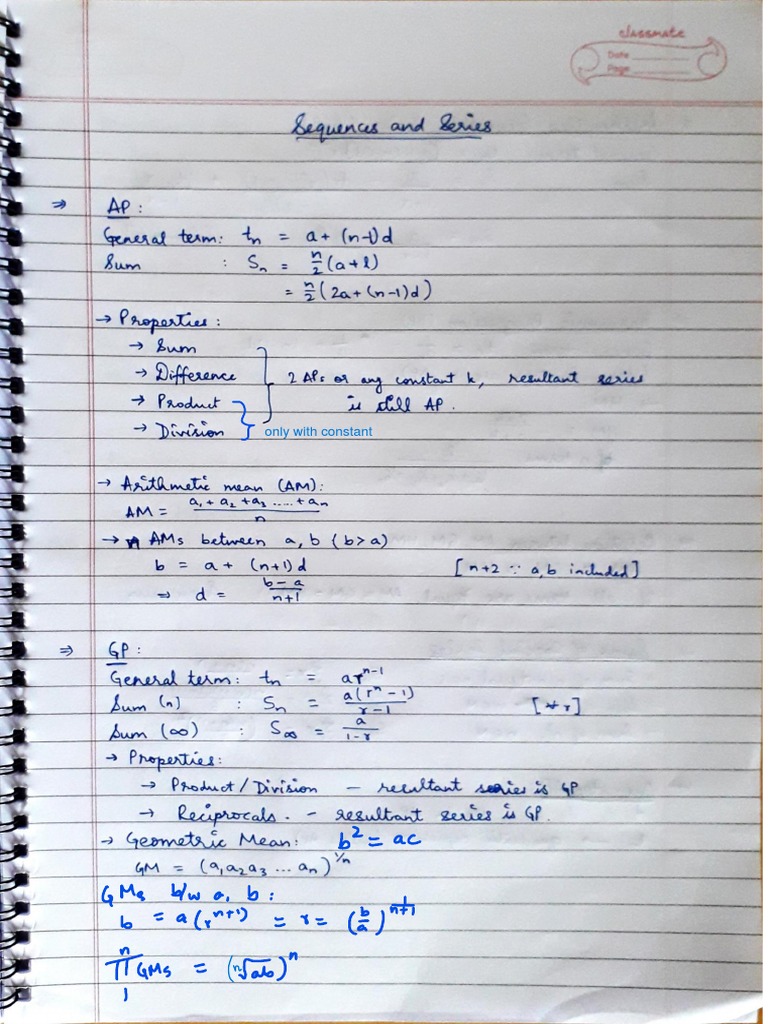 classmate
Date
Page
Sequences and Series
⇒ AP :
General term: tn = a + (n-1)d
Sum : Sn = n/2 (a + l)
= n/2 (2a + (n-1)d)
→ Properties :
→ Sum
→ Difference
2 APs or any constant k, resultant series
→ Product
is still AP.
→ Division
only with constant
→ Arithmetic mean (AM):
AM = a1 + a2 + a3 ..... + an / n
→ n AMs between a, b (b > a)
b = a + (n+1)d [n+2 ∵ a, b included]
⇒ d = b-a / n+1
⇒ GP :
General term: tn = ar^n-1
Sum (n) : Sn = a(r^n - 1) / r-1 [∀ r]
Sum (∞) : S∞ = a / 1-r
→ Properties:
→ Product / Division - resultant series is GP
→ Reciprocals. - resultant series is GP.
→ Geometric Mean: b² = ac
GM = (a1 a2 a3 ... an)^1/n
GMs b/w a, b :
b = a(r^n+1) = r = (b/a)^1/n+1
n
∏ GMs = (ⁿ√ab)^n
1